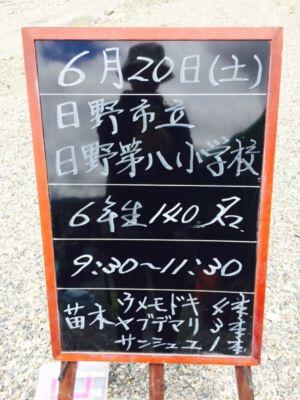 6月20日(土)
日野市立
日野第八小学校
6年生140名
9:30〜11:30
苗木 ウメモドキ 4本
ヤブデマリ 3本
サンシュユ 1本